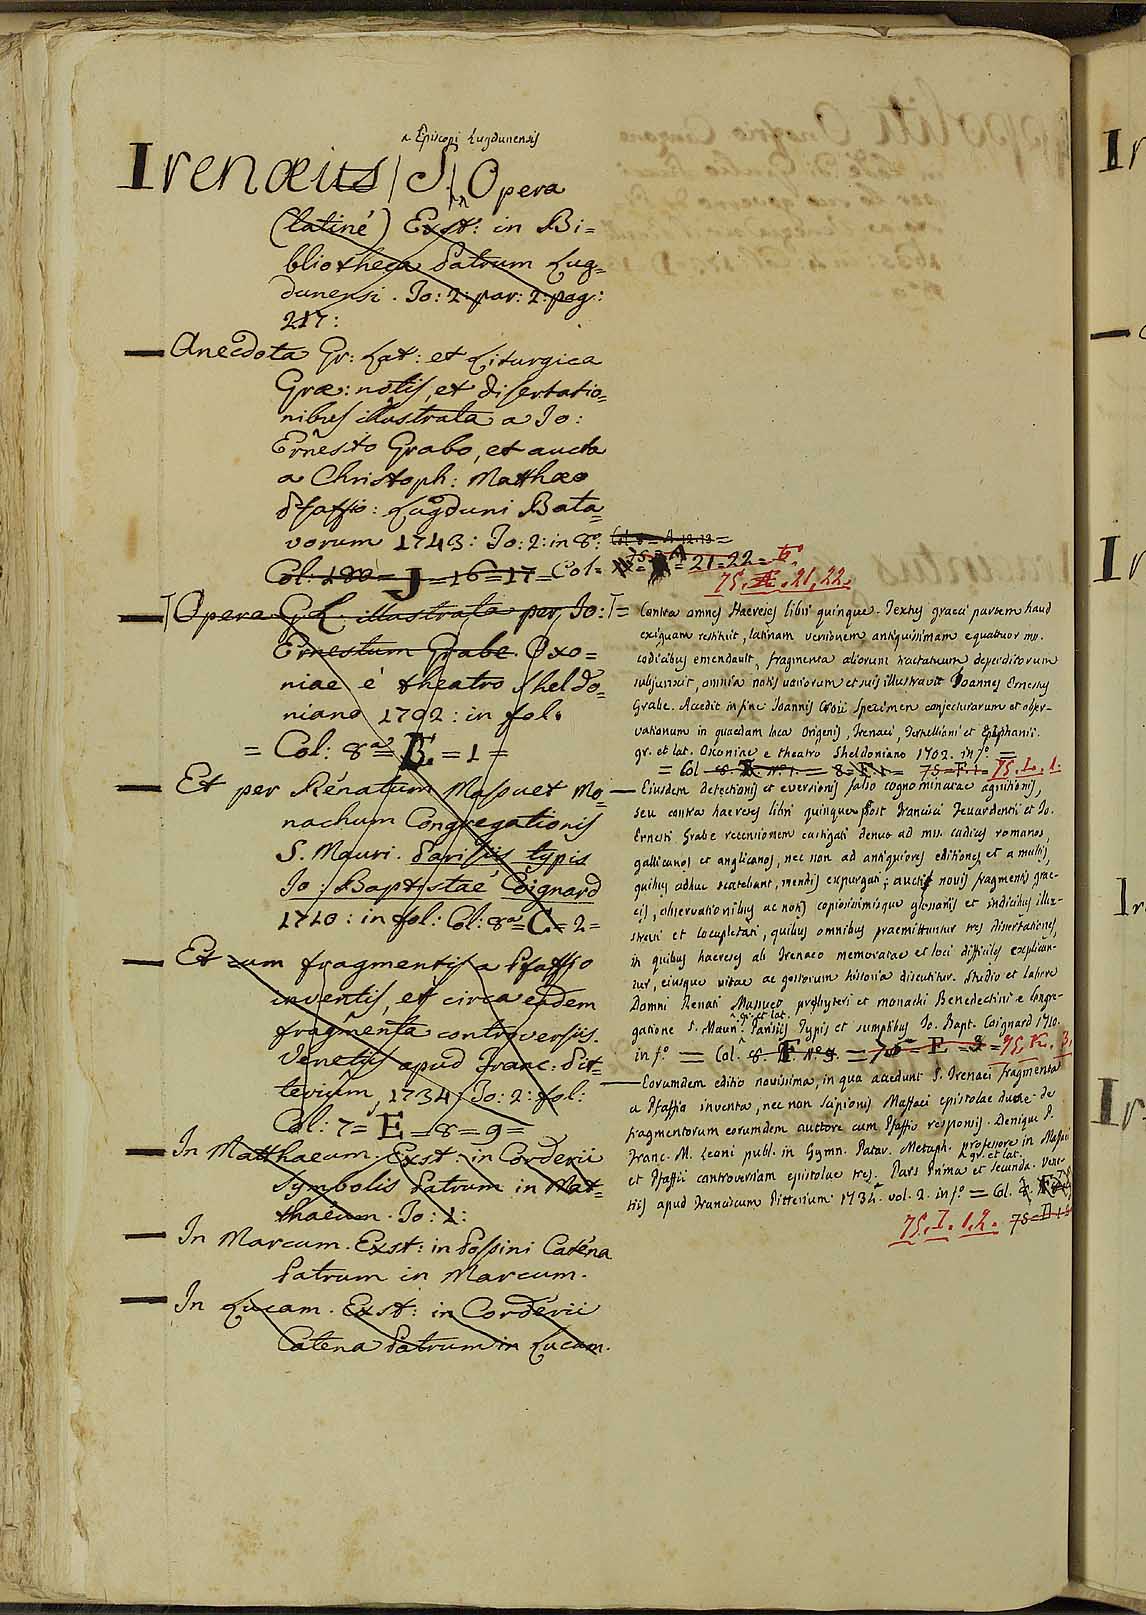 ^ Episcopi Lugdunensis
Irenæus S. Opera
(latinè) Exst: in Bi=
bliotheca Patrum Lug=
dunensi. To: 2: par: 2: pag:
217:
— Anecdota Gr: Lat: et Liturgica
Græ: notis, et disertatio=
nibus illustrata a Jo:
Ernesto Grabo, et aucta
a Christoph: Matthæo
Pfaffio: Lugduni Bata=
vorum 1743: To: 2: in 8º:
Col: 180 = J = 16 = 17 = Col =
= 21 = 22 =
75. 21, 22.
— Opera G. L. illustrata per Jo:
Ernestum Grabe. Oxo=
niae è theatro Sheldo=
niano 1702: in fol.
= Col: 8ª = E = 1 =
— Et per Renatum Massuet Mo=
nachum Congregationis
S. Mauri. Parisiis typis
Jo: Baptistae Coignard
1710: in fol: Col: 8ª = C = 2 =
— Et cum fragmentis a Pfaffio
inventis, et circa eadem
fragmenta controversiis.
Venetiis apud Franc: Pit=
terium, 1734, To: 2: fol:
Col: 7 = E = 8 = 9 =
— In Matthaeum. Exst: in Corderii
Symbolis Patrum in Mat=
thaeum. To: 1:
— In Marcum. Exst: in Possini Catena
Patrum in Marcum.
— In Lucam. Exst: in Corderii
Catena Patrum in Lucam.
= Contra omnes Haereses libri quinque. Textus graeci partem haud
exiguam restituit, latinam versionem antiquissimam equattuor ms.
codicibus emendavit, fragmenta aliorum tractatuum deperditorum
subjunxit, omnia notis variorum et suis illustravit Joannes Ernestus
Grabe. Accedit in fine Joannis Croii Specimen conjecturarum et obser-
vationum in quaedam loca Origenis, Irenaei, Tertulliani et Epiphanii.
gr. et lat. Oxoniae e theatro Sheldoniano 1702. in fº =
= Col 8. Nº 1. = 8 = F. 1 = 75 = F. 1 = 75. L. 1.
— Eiusdem detectionis et eversionis falso cognominatae agnitionis,
seu contra haereses libri quinque post Francisci Feuardentii et Jo.
Ernesti Grabe recensionem castigati denuo ad mss. codices romanos,
gallicanos et anglicanos, nec non ad antiquiores editiones et a multis,
quibus adhuc scatebant, mendis expurgati; aucti novis fragmentis grae-
cis, observationibus ac notis copiosissimisque glossariis et indicibus illu-
strati et locupletati, quibus omnibus praemittuntur tres dissertationes,
in quibus haereses ab Irenaeo memoratae et loci difficiles explican-
tur, eiusque vitae ac gestorum historia discutitur. Studio et labore
Domni Renati Massuet, presbyteri et monachi Benedectini e Congre-
gatione S. Mauri. ^ gr. et lat. Parisiis Typis et sumptibus Jo. Bapt. Coignard 1710.
in fº = Col. 8. F Nº = 75 = E = 2 = 75. K. 3.
— Eorumdem editio novissima, in qua accedunt S. Irenaei fragmenta
a Pfaffio inventa, nec non Scipionis Maffaei epistolae duae de
fragmentorum eorumdem auctore cum Pfaffii responsis. Denique P.
Franc. M. Leoni publ. in Gymn. Patav. Metaph. professore in Maffaei
et Pfaffii controversiam epistolae tres. Pars Prima et secunda. ^ gr. et lat. Vene-
tiis apud Franciscum Pitterium 1734. vol. 2. in fº = Col.
75. I. 1.2.